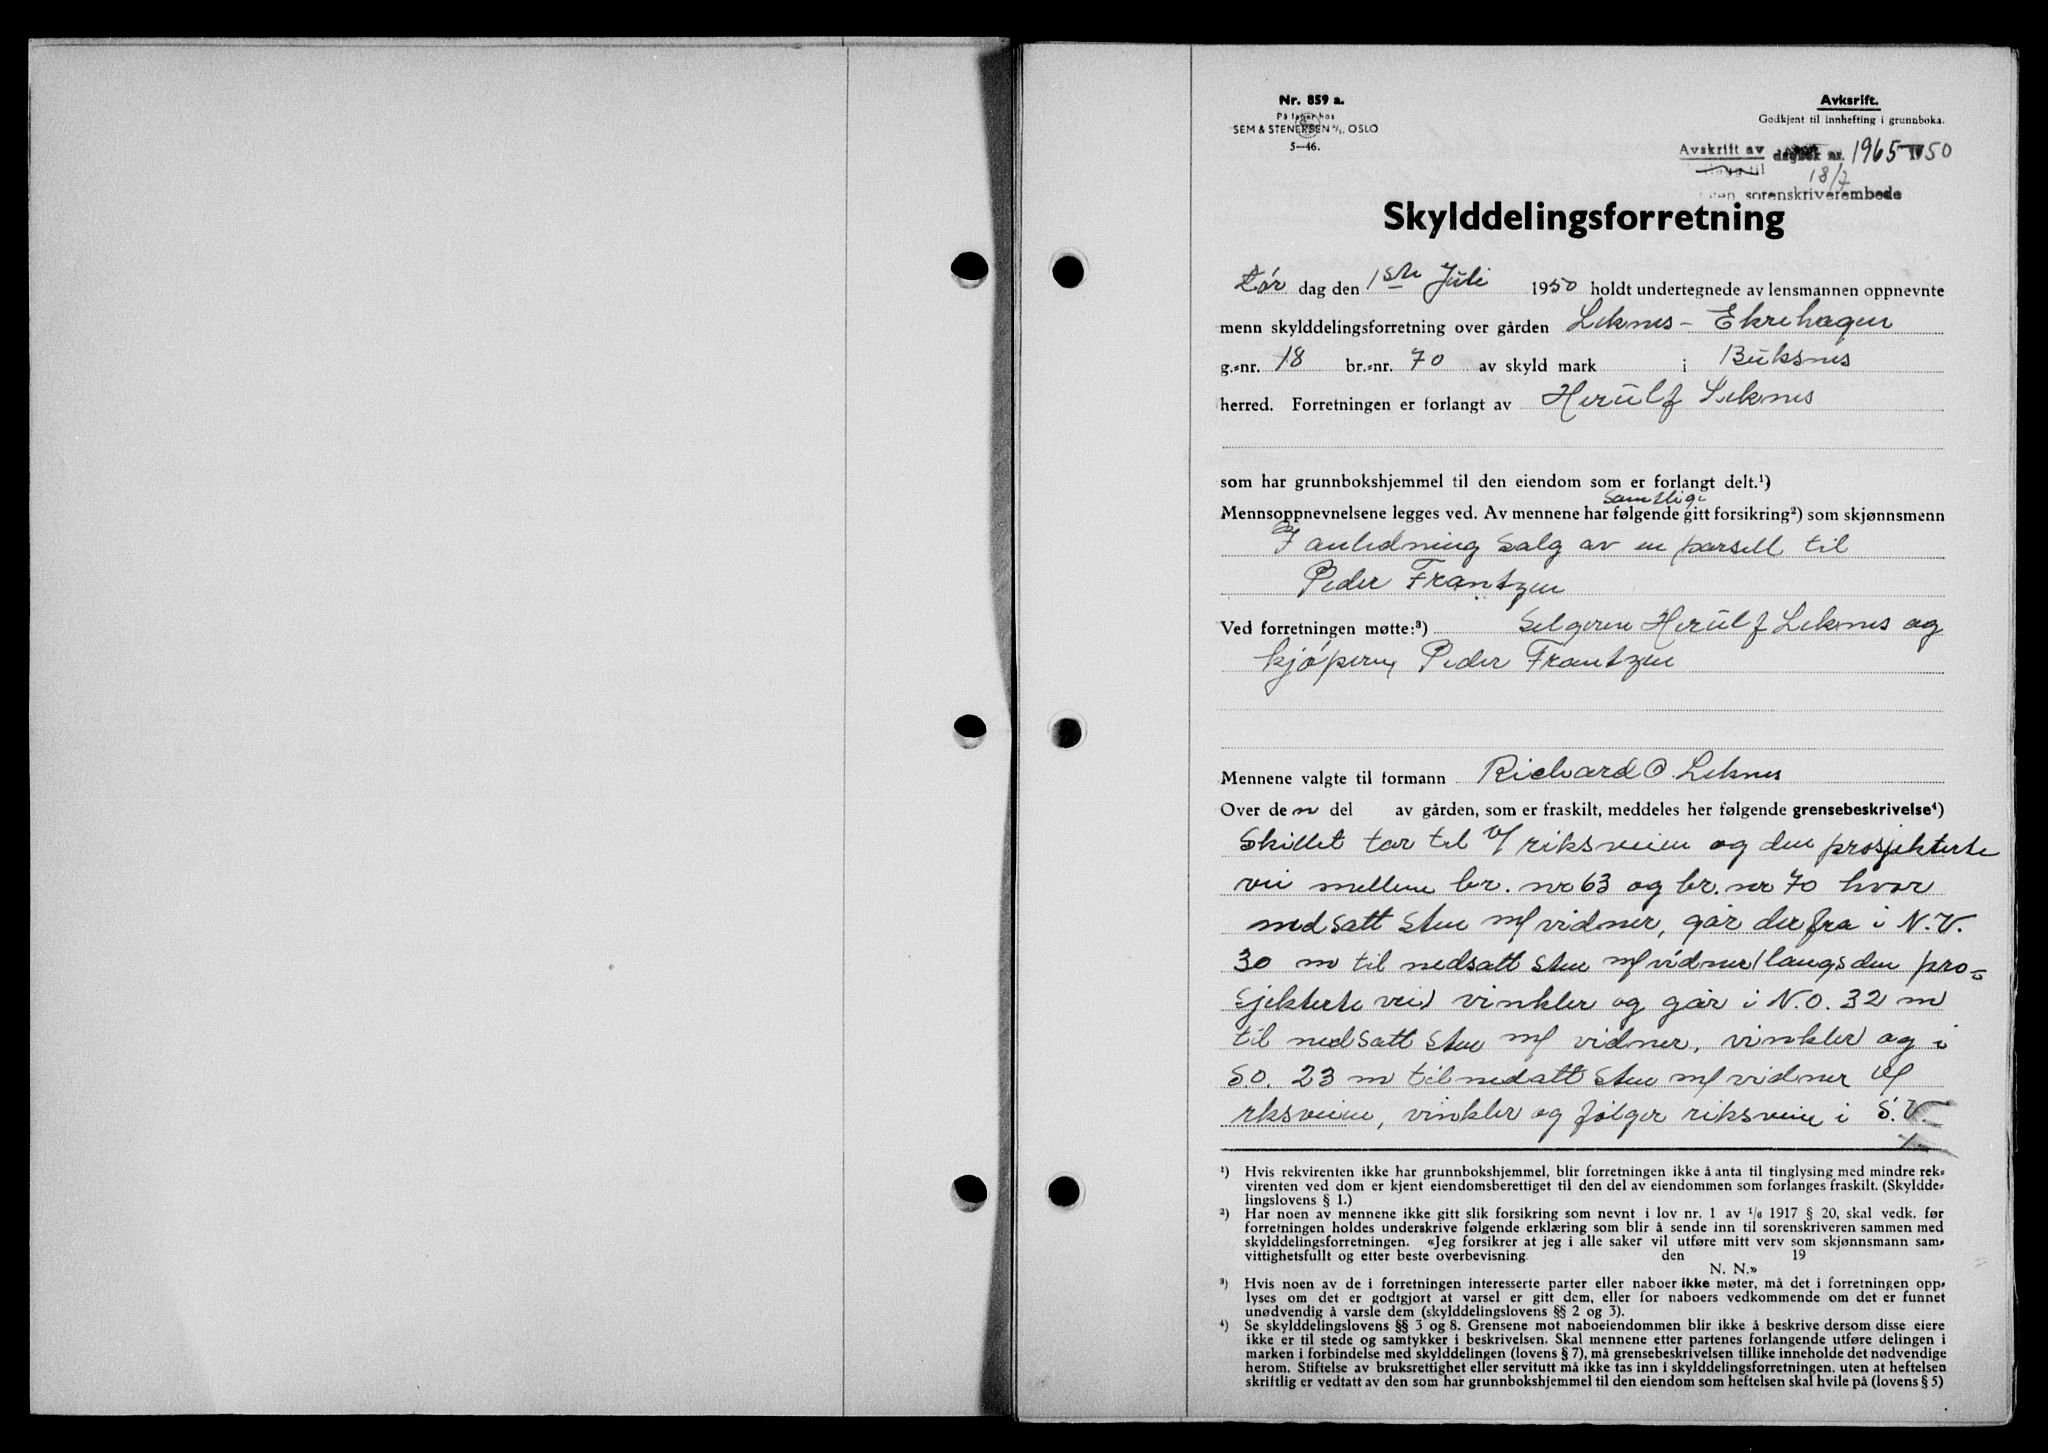 Nr. 859 a.
På lager hos
SEM & STENERSEN A/S, OSLO
5—46.
Avksrift.
Godkjent til innhefting i grunnboka.
Avskrift av dagbok nr. 1965 1950
18/7
sorenskriverembede
Skylddelingsforretning
Lør dag den 1ste Juli 1950 holdt undertegnede av lensmannen oppnevnte
menn skylddelingsforretning over gården Leknes - Ekrehagen
g.=nr. 18 br.=nr. 70 av skyld mark i Buksnes
herred. Forretningen er forlangt av Herulf Leknes
som har grunnbokshjemmel til den eiendom som er forlangt delt.¹)
samtlige
Mennsoppnevnelsene legges ved. Av mennene har følgende gitt forsikring²) som skjønnsmenn
I anledning salg av en parsell til
Peder Frantzen
Ved forretningen møtte:³) Selgeren Herulf Leknes og
kjøperen Peder Frantzen
Mennene valgte til formann Richard O. Leknes
Over den del av gården, som er fraskilt, meddeles her følgende grensebeskrivelse⁴)
Skillet tar til v/ riksveien og den prosjekterte
vei mellem br. nr 63 og br. nr 70 hvor
nedsatt sten m/ vidner, går derfra i N.V.
30 m til nedsatt sten m/ vidner (langs den pro=
sjekterte vei) vinkler og går i N.O. 32 m
til nedsatt sten m/ vidner, vinkler og i
SO. 23 m til nedatt sten m/ vidner v/
rksveien, vinkler og følger riksveien i S.V
¹) Hvis rekvirenten ikke har grunnbokshjemmel, blir forretningen ikke å anta til tinglysing med mindre rek=
virenten ved dom er kjent eiendomsberettiget til den del av eiendommen som forlanges fraskilt. (Skyldde=
lingslovens § 1.)
²) Har noen av mennene ikke gitt slik forsikring som nevnt i lov nr. 1 av ¹/₆ 1917 § 20, skal vedk. før
forretningen holdes underskrive følgende erklæring som blir å sende inn til sorenskriveren sammen med
skylddelingsforretningen. «Jeg forsikrer at jeg i alle saker vil utføre mitt verv som skjønnsmann sam=
vittighetsfullt og etter beste overbevisning den 19
N. N.»
³) Hvis noen av de i forretningen interesserte parter eller naboer ikke møter, må det i forretningen opp=
lyses om det er godtgjort at varsel er gitt dem, eller for naboers vedkommende om det er funnet
unødvendig å varsle dem (skylddelingslovens §§ 2 og 3).
⁴) Se skylddelingslovens §§ 3 og 8. Grensene mot naboeiendommen blir ikke å beskrive dersom disse eiere
ikke er til stede og samtykker i beskrivelsen. Skal mennene etter partenes forlangende utføre delingen i
marken i forbindelse med skylddelingen (lovens § 7), må grensebeskrivelsen tillike inneholde det nødvendige
herom. Stiftelse av bruksrettighet eller servitutt må ikke tas inn i skylddelingsforretningen. uten at heftelsen
skriftlig er vedtatt av den som har grunnbokshjemmel til den eiendom som heftelsen skal hvile på (lovens § 5)